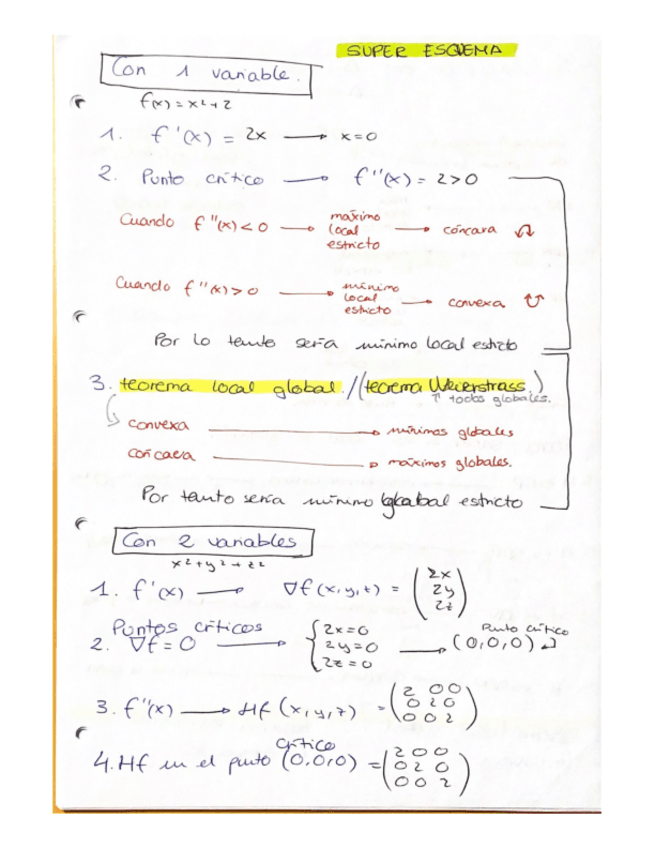 SUPER ESQUEMA
Con 1 variable.
f(x) = x²+2
1. f'(x) = 2x → x=0
2. Punto crítico → f''(x) = 2>0
Cuando f''(x) < 0 → máximo local estricto → cóncava
Cuando f''(x) > 0 → mínimo local estricto → convexa
Por lo tanto sería mínimo local estricto
3. teorema local global. / (teorema Weierstrass.)
↑ todos globales.
convexa → mínimos globales
concava → máximos globales.
Por tanto sería mínimo global estricto
Con 2 variables
x²+y²+z²
1. f'(x) → ∇f(x,y,z) = (2x 2y 2z)
Puntos críticos
2. ∇f = 0 → { 2x=0 2y=0 2z=0 → (0,0,0) Punto crítico
3. f''(x) → Hf (x,y,z) = (2 0 0 0 2 0 0 0 2)
4. Hf en el punto crítico (0,0,0) = (2 0 0 0 2 0 0 0 2)